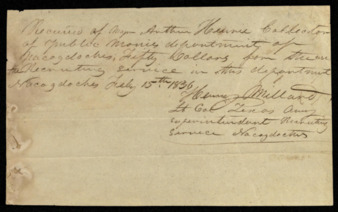 Received of Arthur Henrie Collector
of Public Monies department of
Nacogdoches, Fifty Dollars for the
Recruiting Service in this department
Nacogdoches Feby 15th 1836
Henry Millard
Lt Col Texas Army
Superintendent Recruiting
Service Nacogdoches